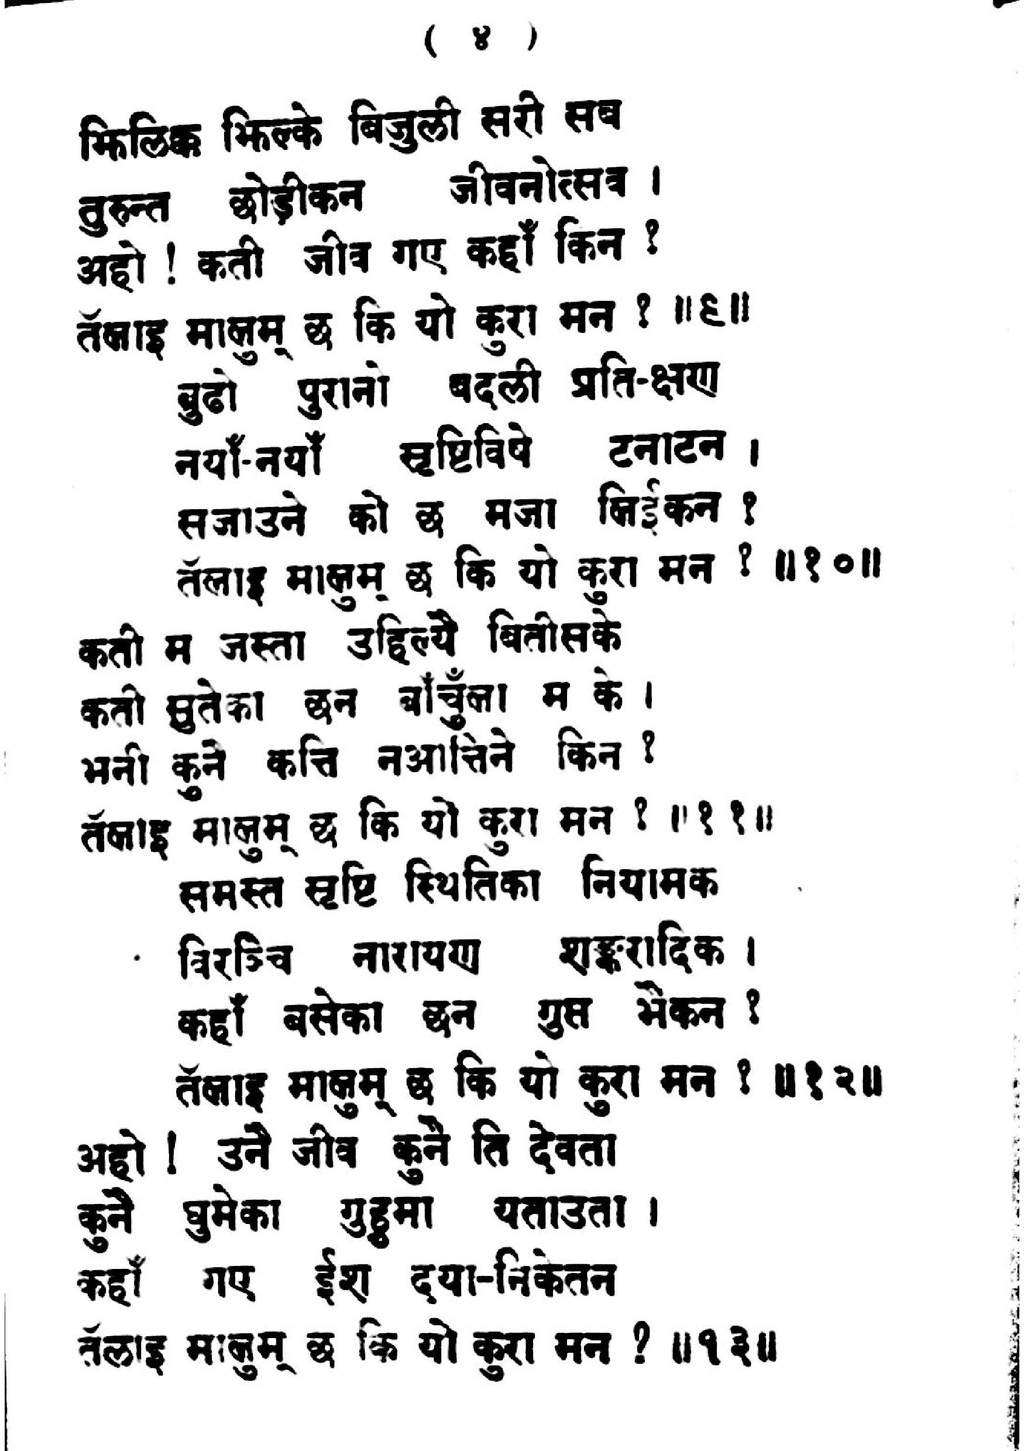 ( ४ )
झिलिक्क झिल्के बिजुली सरी सब
तुरुन्त छोड़ीकन जीवनोत्सव ।
अहो ! कती जीव गए कहाँ किन ?
तँलाइ मालुम् छ कि यो कुरा मन ? ॥९॥
बुढो पुरानो बदली प्रति-क्षण
नयाँ-नयाँ सृष्टिविषे टनाटन ।
सजाउने को छ मजा लिईकन ?
तँलाइ मालुम् छ कि यो कुरा मन ? ॥१०॥
कती म जस्ता उहिल्यै बितीसके
कती सुतेका छन बाँचुँला म के ।
भनी कुनै कत्ति नआत्तिने किन ?
तँलाइ मालुम् छ कि यो कुरा मन ? ॥११॥
समस्त सृष्टि स्थितिका नियामक
विरञ्चि नारायण शङ्करादिक ।
कहाँ बसेका छन गुप्त भैकन ?
तँलाइ मालुम् छ कि यो कुरा मन ? ॥१२॥
अहो ! उनै जीव कुनै ति देवता
कुनै घुमेका गुड्डुमा यताउता ।
कहाँ गए ईश दया-निकेतन
तँलाइ मालुम् छ कि यो कुरा मन ? ॥१३॥